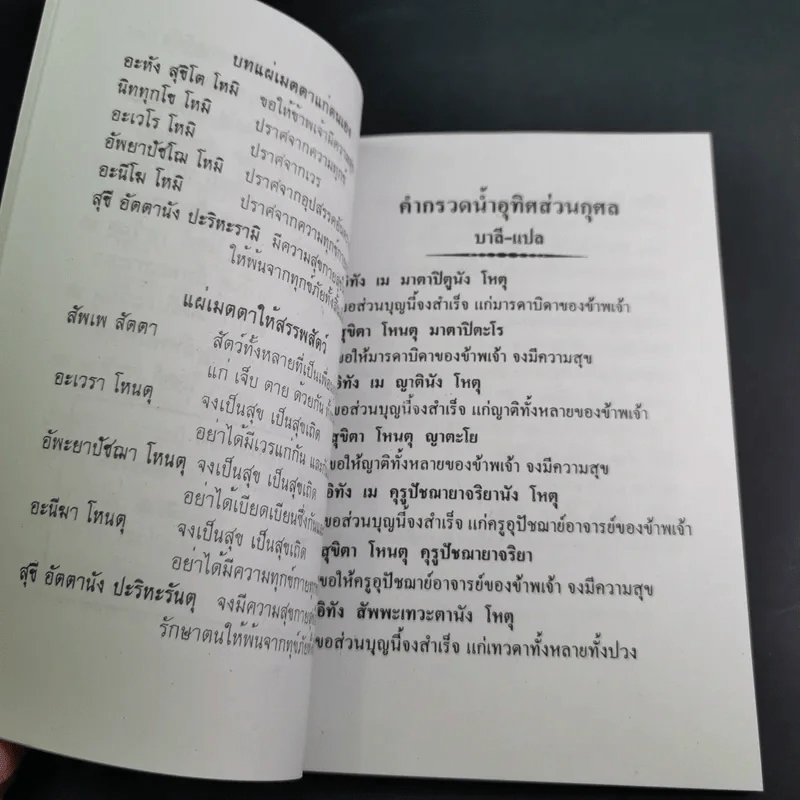 บทแผ่เมตตาแก่ตนเอง
อะหัง สุขิโต โหมิ ขอให้ข้าพเจ้ามีความสุข
นิททุกโข โหมิ ปราศจากความทุกข์
อะเวโร โหมิ ปราศจากเวร
อัพยาปัชโฌ โหมิ ปราศจากอุปสรรคอันตราย
อะนีโฆ โหมิ ปราศจากความทุกข์กาย
สุขี อัตตานัง ปะริหะรามิ มีความสุขกาย
ให้พ้นจากทุกข์ภัยทั้งสิ้น
แผ่เมตตาให้สรรพสัตว์
สัพเพ สัตตา สัตว์ทั้งหลายที่เป็นเพื่อน
แก่ เจ็บ ตาย ด้วยกัน
อะเวรา โหนตุ จงเป็นสุข เป็นสุขเถิด
อย่าได้มีเวรแก่กัน และ
อัพะยาปัชฌา โหนตุ จงเป็นสุข เป็นสุขเถิด
อย่าได้เบียดเบียนซึ่งกันและ
อะนีฆา โหนตุ จงเป็นสุข เป็นสุขเถิด
อย่าได้มีความทุกข์กายทุกข์
สุขี อัตตานัง ปะริหะรันตุ จงมีความสุขกาย
รักษาตนให้พ้นจากทุขภัย
คำกรวดน้ำอุทิศส่วนกุศล
บาลี-แปล
อิทัง เม มาตาปิตูนัง โหตุ
ขอส่วนบุญนี้จงสำเร็จ แก่มารดาบิดาของข้าพเจ้า
สุขิตา โหนตุ มาตาปิตะโร
ขอให้มารดาบิดาของข้าพเจ้า จงมีความสุข
อิทัง เม ญาตินัง โหตุ
ขอส่วนบุญนี้จงสำเร็จ แก่ญาติทั้งหลายของข้าพเจ้า
สุขิตา โหนตุ ญาตะโย
ขอให้ญาติทั้งหลายของข้าพเจ้า จงมีความสุข
อิทัง เม คุรูปัชณายาจริยานัง โหตุ
ขอส่วนบุญนี้จงสำเร็จ แก่ครูอุปัชฌาย์อาจารย์ของข้าพเจ้า
สุขิตา โหนตุ คุรูปัชณายาจริยา
ขอให้ครูอุปัชฌาย์อาจารย์ของข้าพเจ้า จงมีความสุข
อิทัง สัพพะเทวะตานัง โหตุ
ขอส่วนบุญนี้จงสำเร็จ แก่เทวดาทั้งหลายทั้งปวง